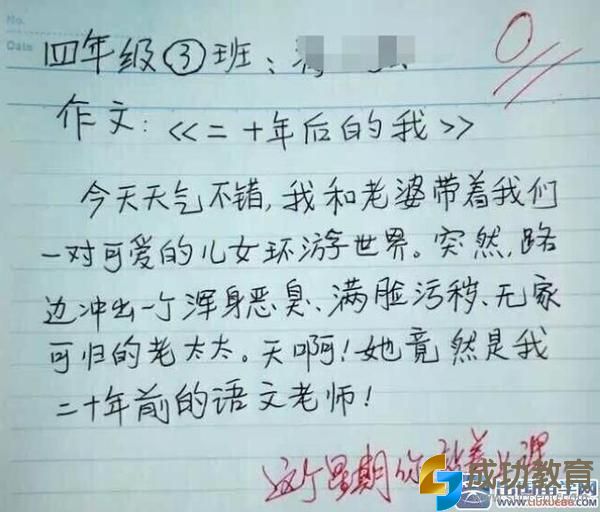 No.
Date
四年级③班:
0
作文:《二十年后的我》
今天天气不错,我和老婆带着我们
一对可爱的儿女环游世界。突然,路
边冲出一个浑身恶臭、满脸污秽、无家
可归的老太太。天啊!她竟然是我
二十年前的语文老师!
这个星期你站着上课
成功教育